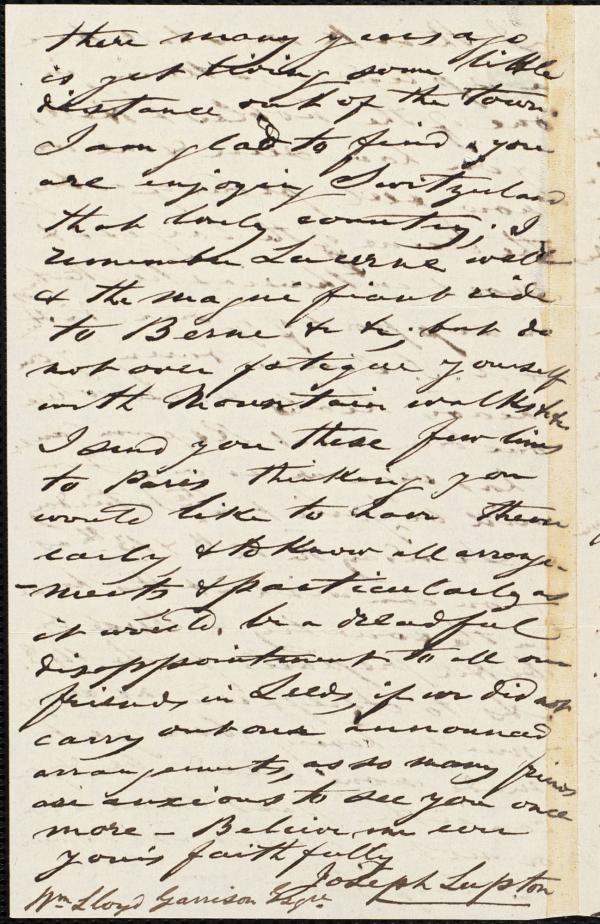 there many years ago
is yet living some little
distance out of the Town.
I am glad to find you
are enjoying Switzerland
that lovely country; I
remember Lucerne well
& the magnificent ride
to Berne &c &c; but do
not over fatigue yourself
with Mountain walks &c &c
I send you these few lines
to Paris thinking you
would like to have them
early & to Know all arrange-
-ments & particularly as
it would be a dreadful
disappointment to all our
friends in Leeds, if we did not
carry out our announced
arrangements, as so many friends
are anxious to see you once
more – Believe me ever
yours faithfully
Joseph Lupton
Wm Lloyd Garrison Esqre